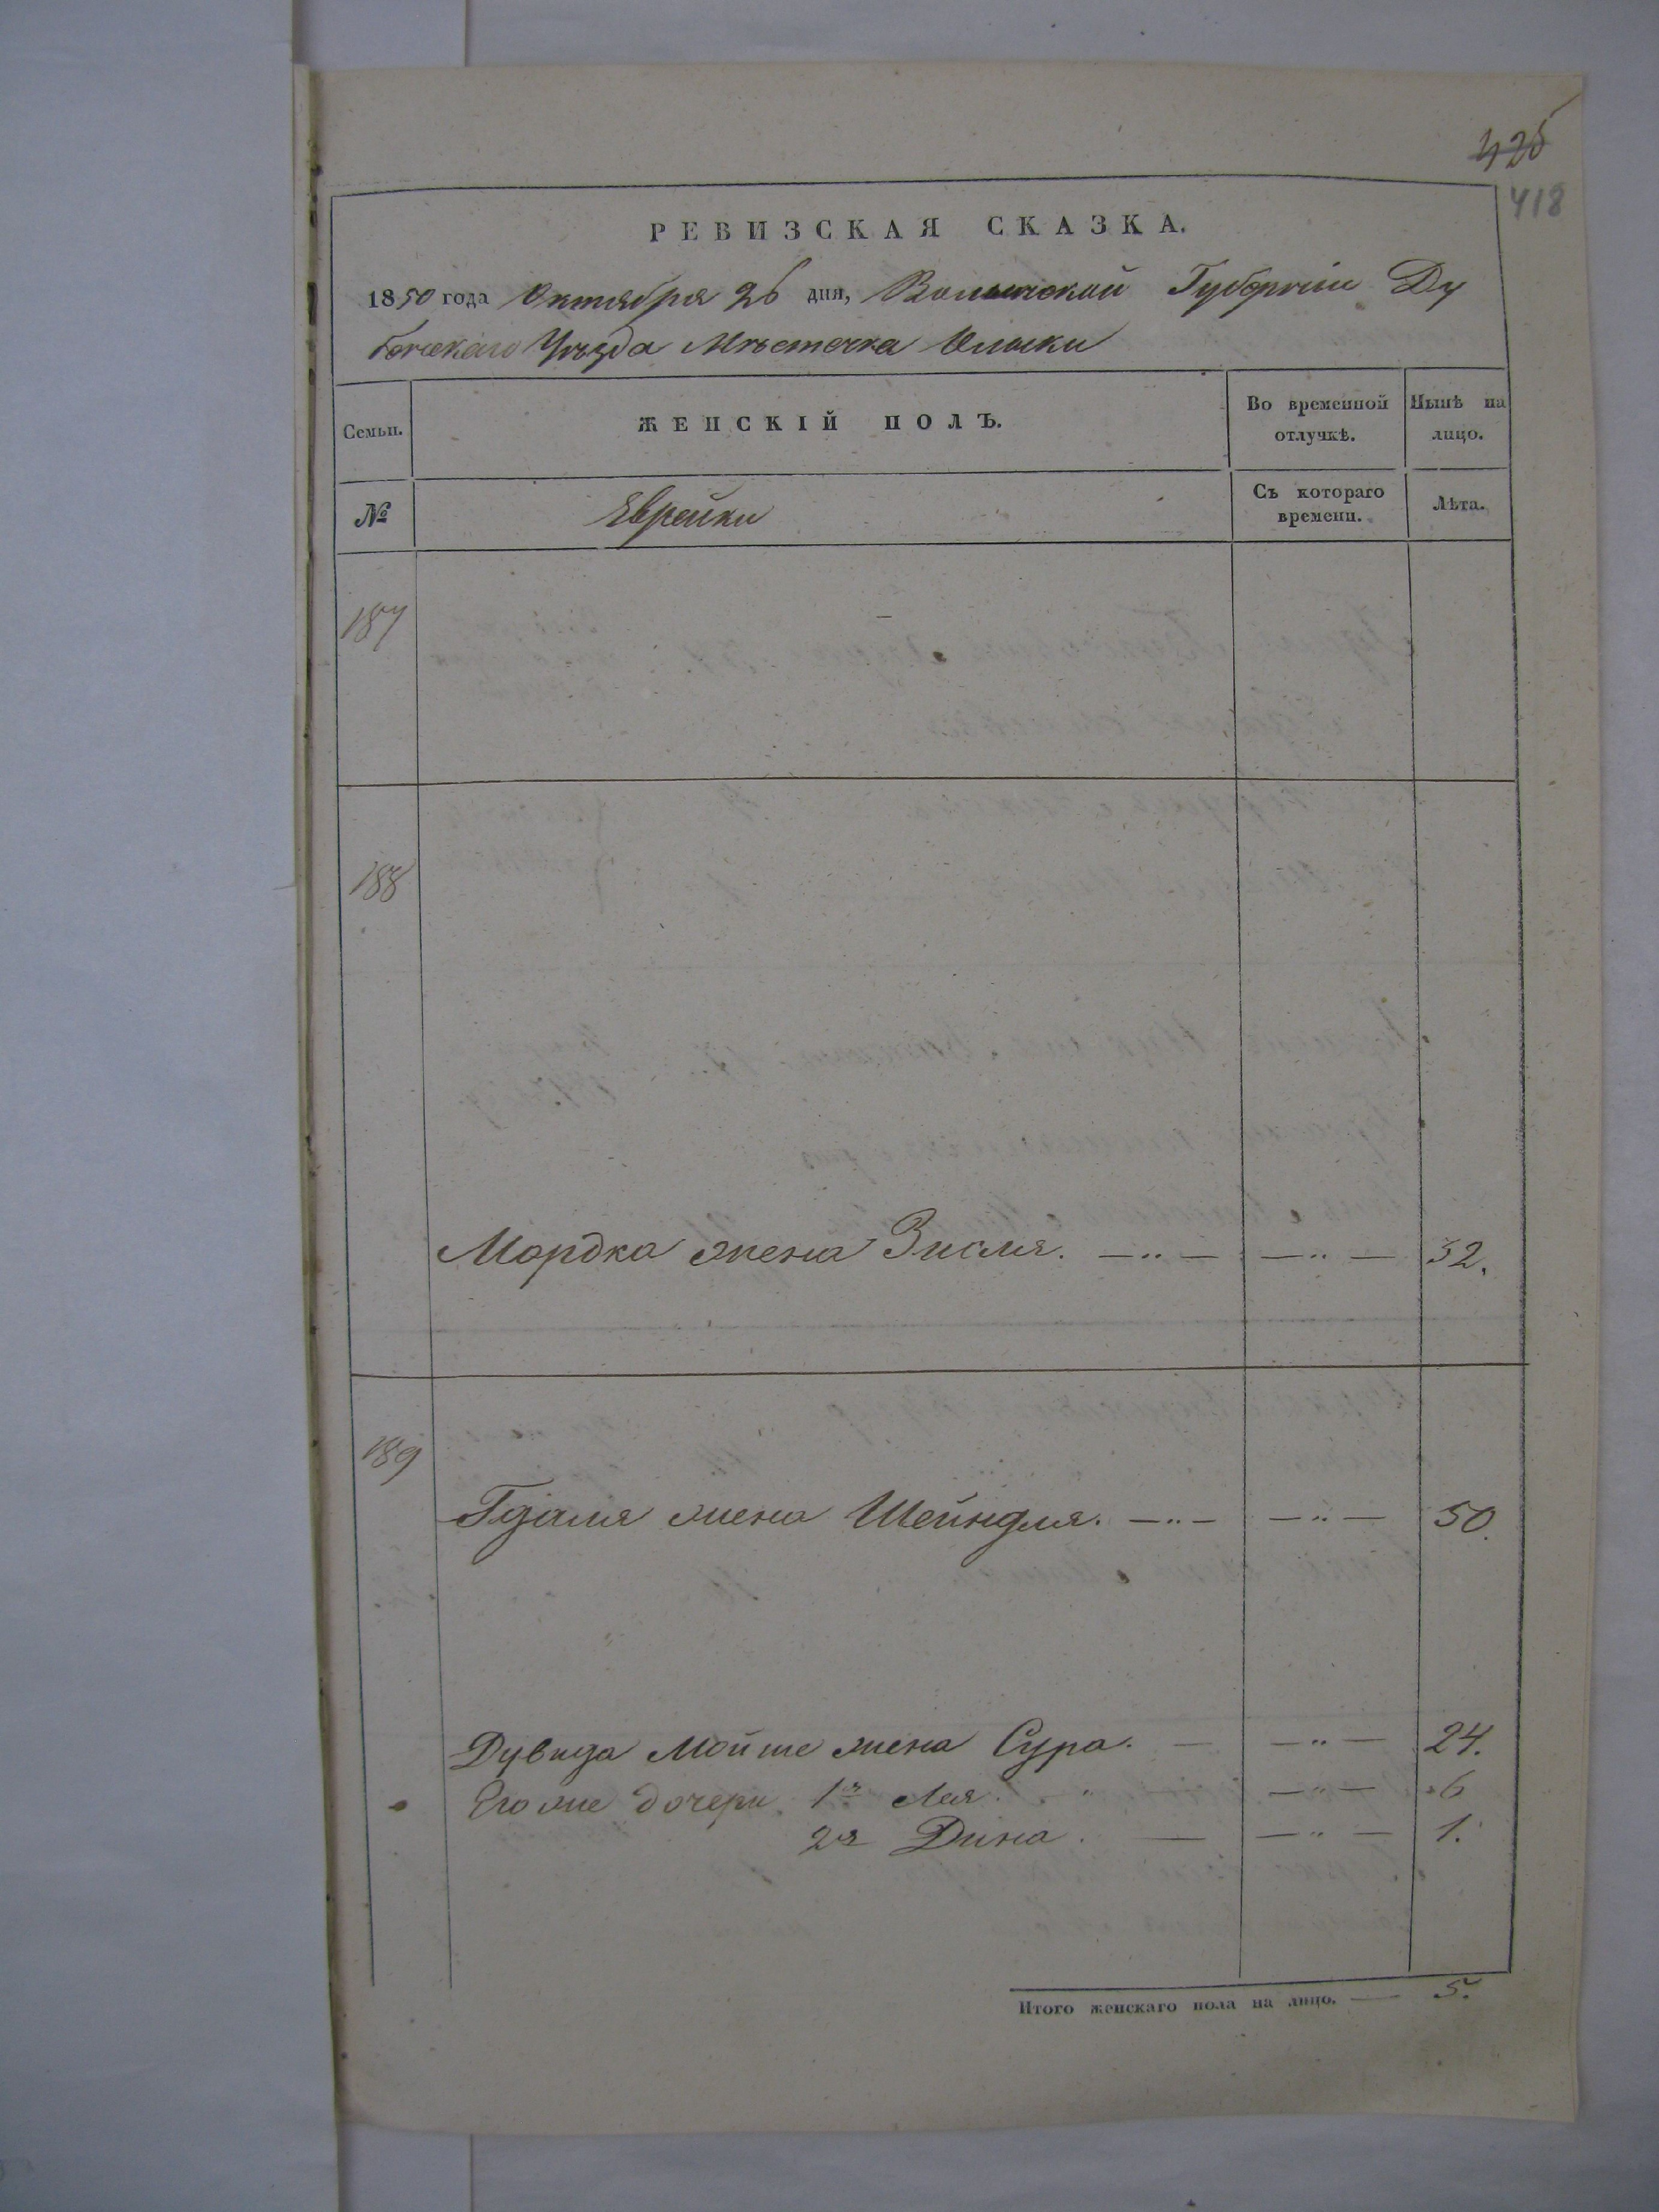 425
418
РЕВИЗСКАЯ СКАЗКА.
1850 года Октября 26 дня, Волынской Губерніи Ду
бенскаго Уѣзда Мѣстечка Олыки
Семьи. ЖЕНСКІЙ ПОЛЪ. Во временной отлучкѣ. Нынѣ на лицо.
№ Еврейки Съ котораго времени. Лѣта.
187
188
Мордка жена Зисля. — " — — " — 32.
189
Гдаля жена Шейндля. — " — — " — 50.
Дувида Мойше жена Сура. — — " — 24.
Его же дочери 1я Лея. " — — " — 6
2я Дина. — — " — 1.
Итого женскаго пола на лицо. — 5.